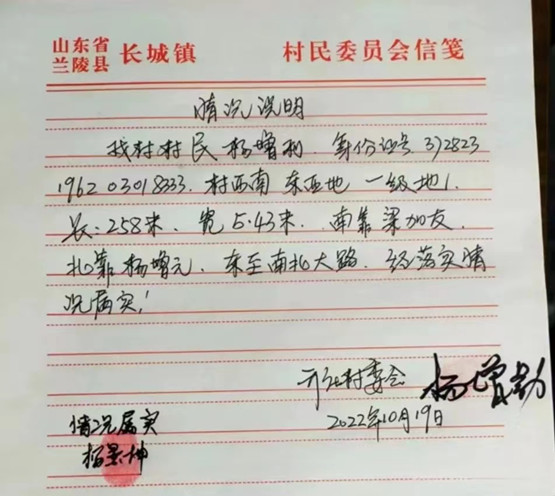 山东省
兰陵县 长城镇 村民委员会信笺
情况说明
我村村民杨增利.身份证号372823
196203018333.村西南东西地一级地1.
长:258米.宽5.43米.南靠梁加友.
北靠杨增元.东至南北大路.经落实情
况属实!
村委会 杨增勤
2022年10月19日
情况属实
杨景坤